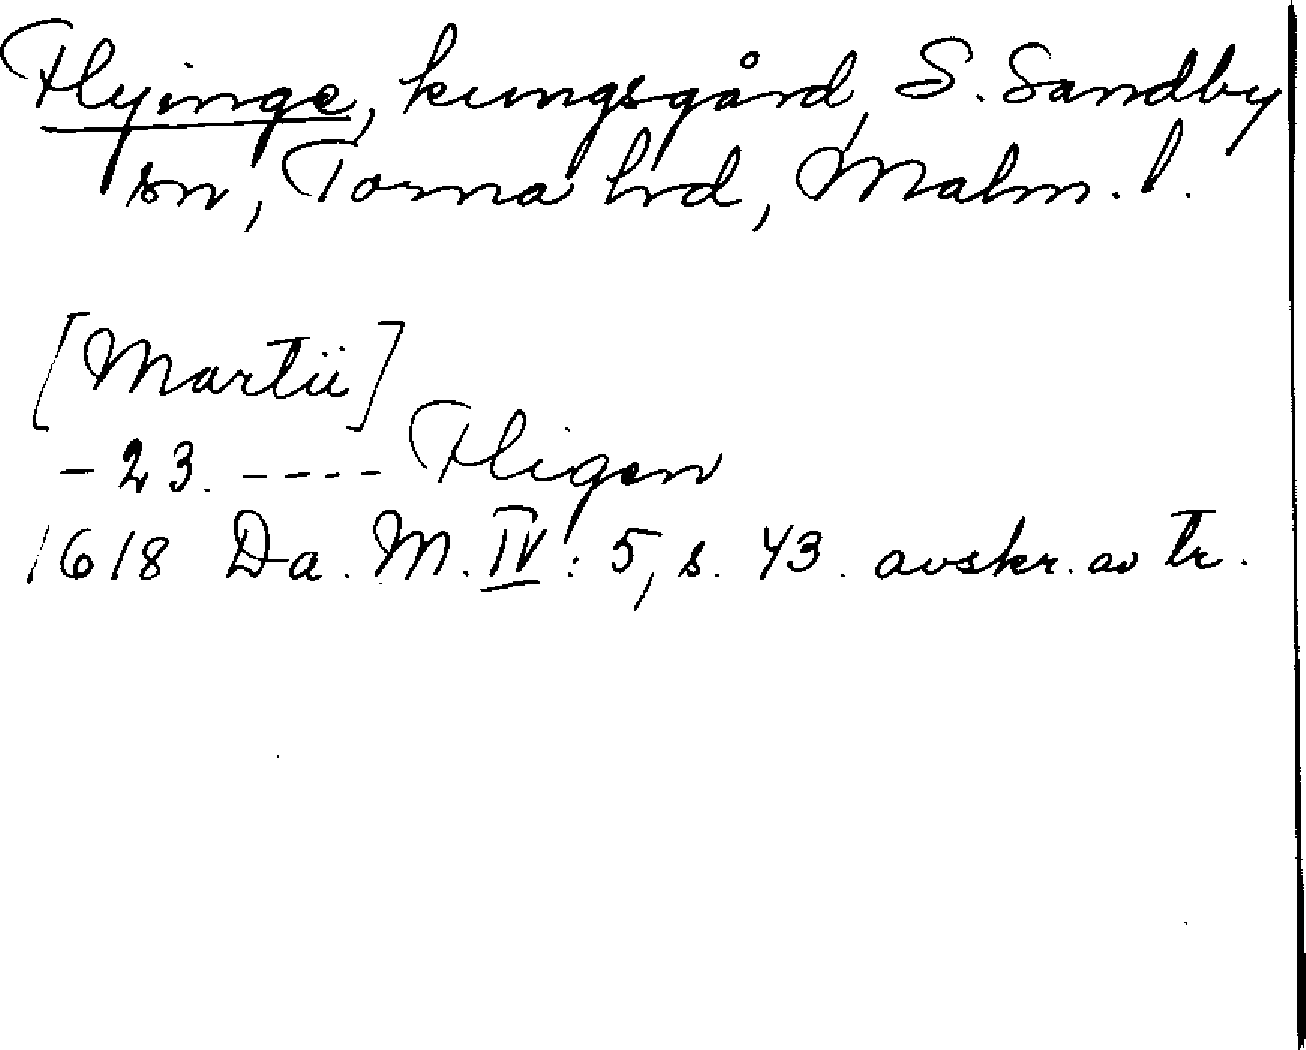 Flyinge, kungsgård, S. Sandby
sn, Torna hd, Malm. l.
[Martii]
- 23. - - - - Fligen
1618 Da. M. IV : 5, s. 43. avskr. av tr.